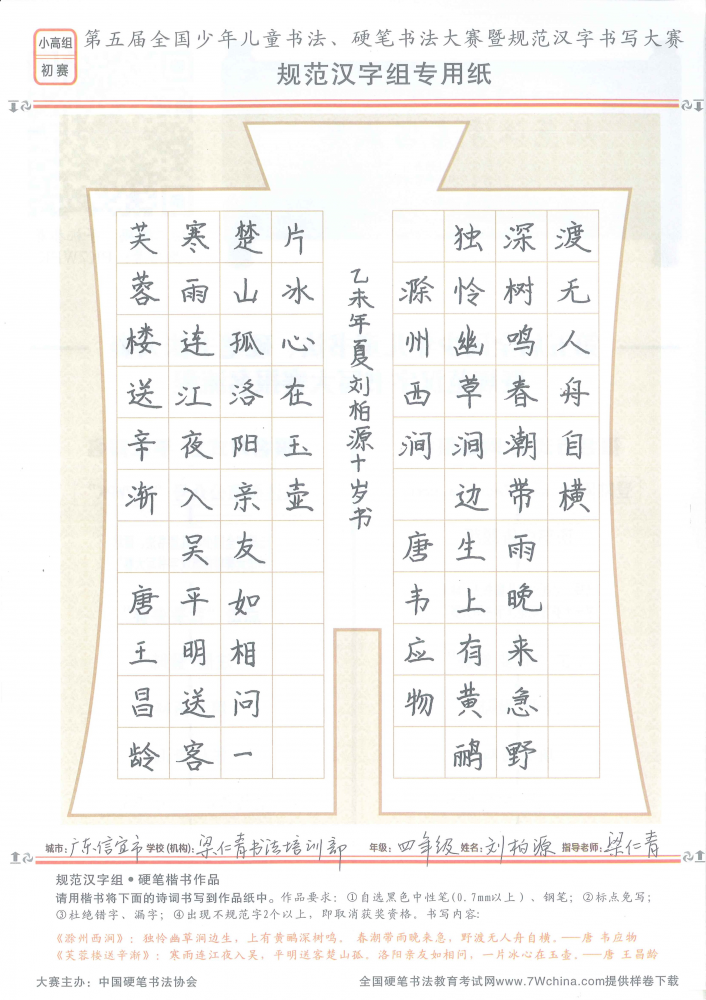 小高组
初赛
第五届全国少年儿童书法、硬笔书法大赛暨规范汉字书写大赛
规范汉字组专用纸
芙蓉楼送辛渐 唐王昌龄
寒雨连江夜入吴平明送客
楚山孤洛阳亲友如相问一
片冰心在玉壶
乙未年夏刘柏源十岁书
滁州西涧 唐韦应物
独怜幽草涧边生上有黄鹂
深树鸣春潮带雨晚来急野
渡无人舟自横
城市：广东信宜市 学校(机构)：梁仁青书法培训部 年级：四年级 姓名：刘柏源 指导老师：梁仁青
规范汉字组•硬笔楷书作品
请用楷书将下面的诗词书写到作品纸中。作品要求：①自选黑色中性笔(0.7mm以上）、钢笔；②标点免写；
③杜绝错字、漏字；④出现不规范字2个以上，即取消获奖资格。书写内容：
《滁州西涧》：独怜幽草涧边生，上有黄鹂深树鸣。 春潮带雨晚来急，野渡无人舟自横。——唐 韦应物
《芙蓉楼送辛渐》：寒雨连江夜入吴，平明送客楚山孤。洛阳亲友如相问，一片冰心在玉壶。——唐 王昌龄
大赛主办：中国硬笔书法协会 全国硬笔书法教育考试网www.7Wchina.com提供样卷下载